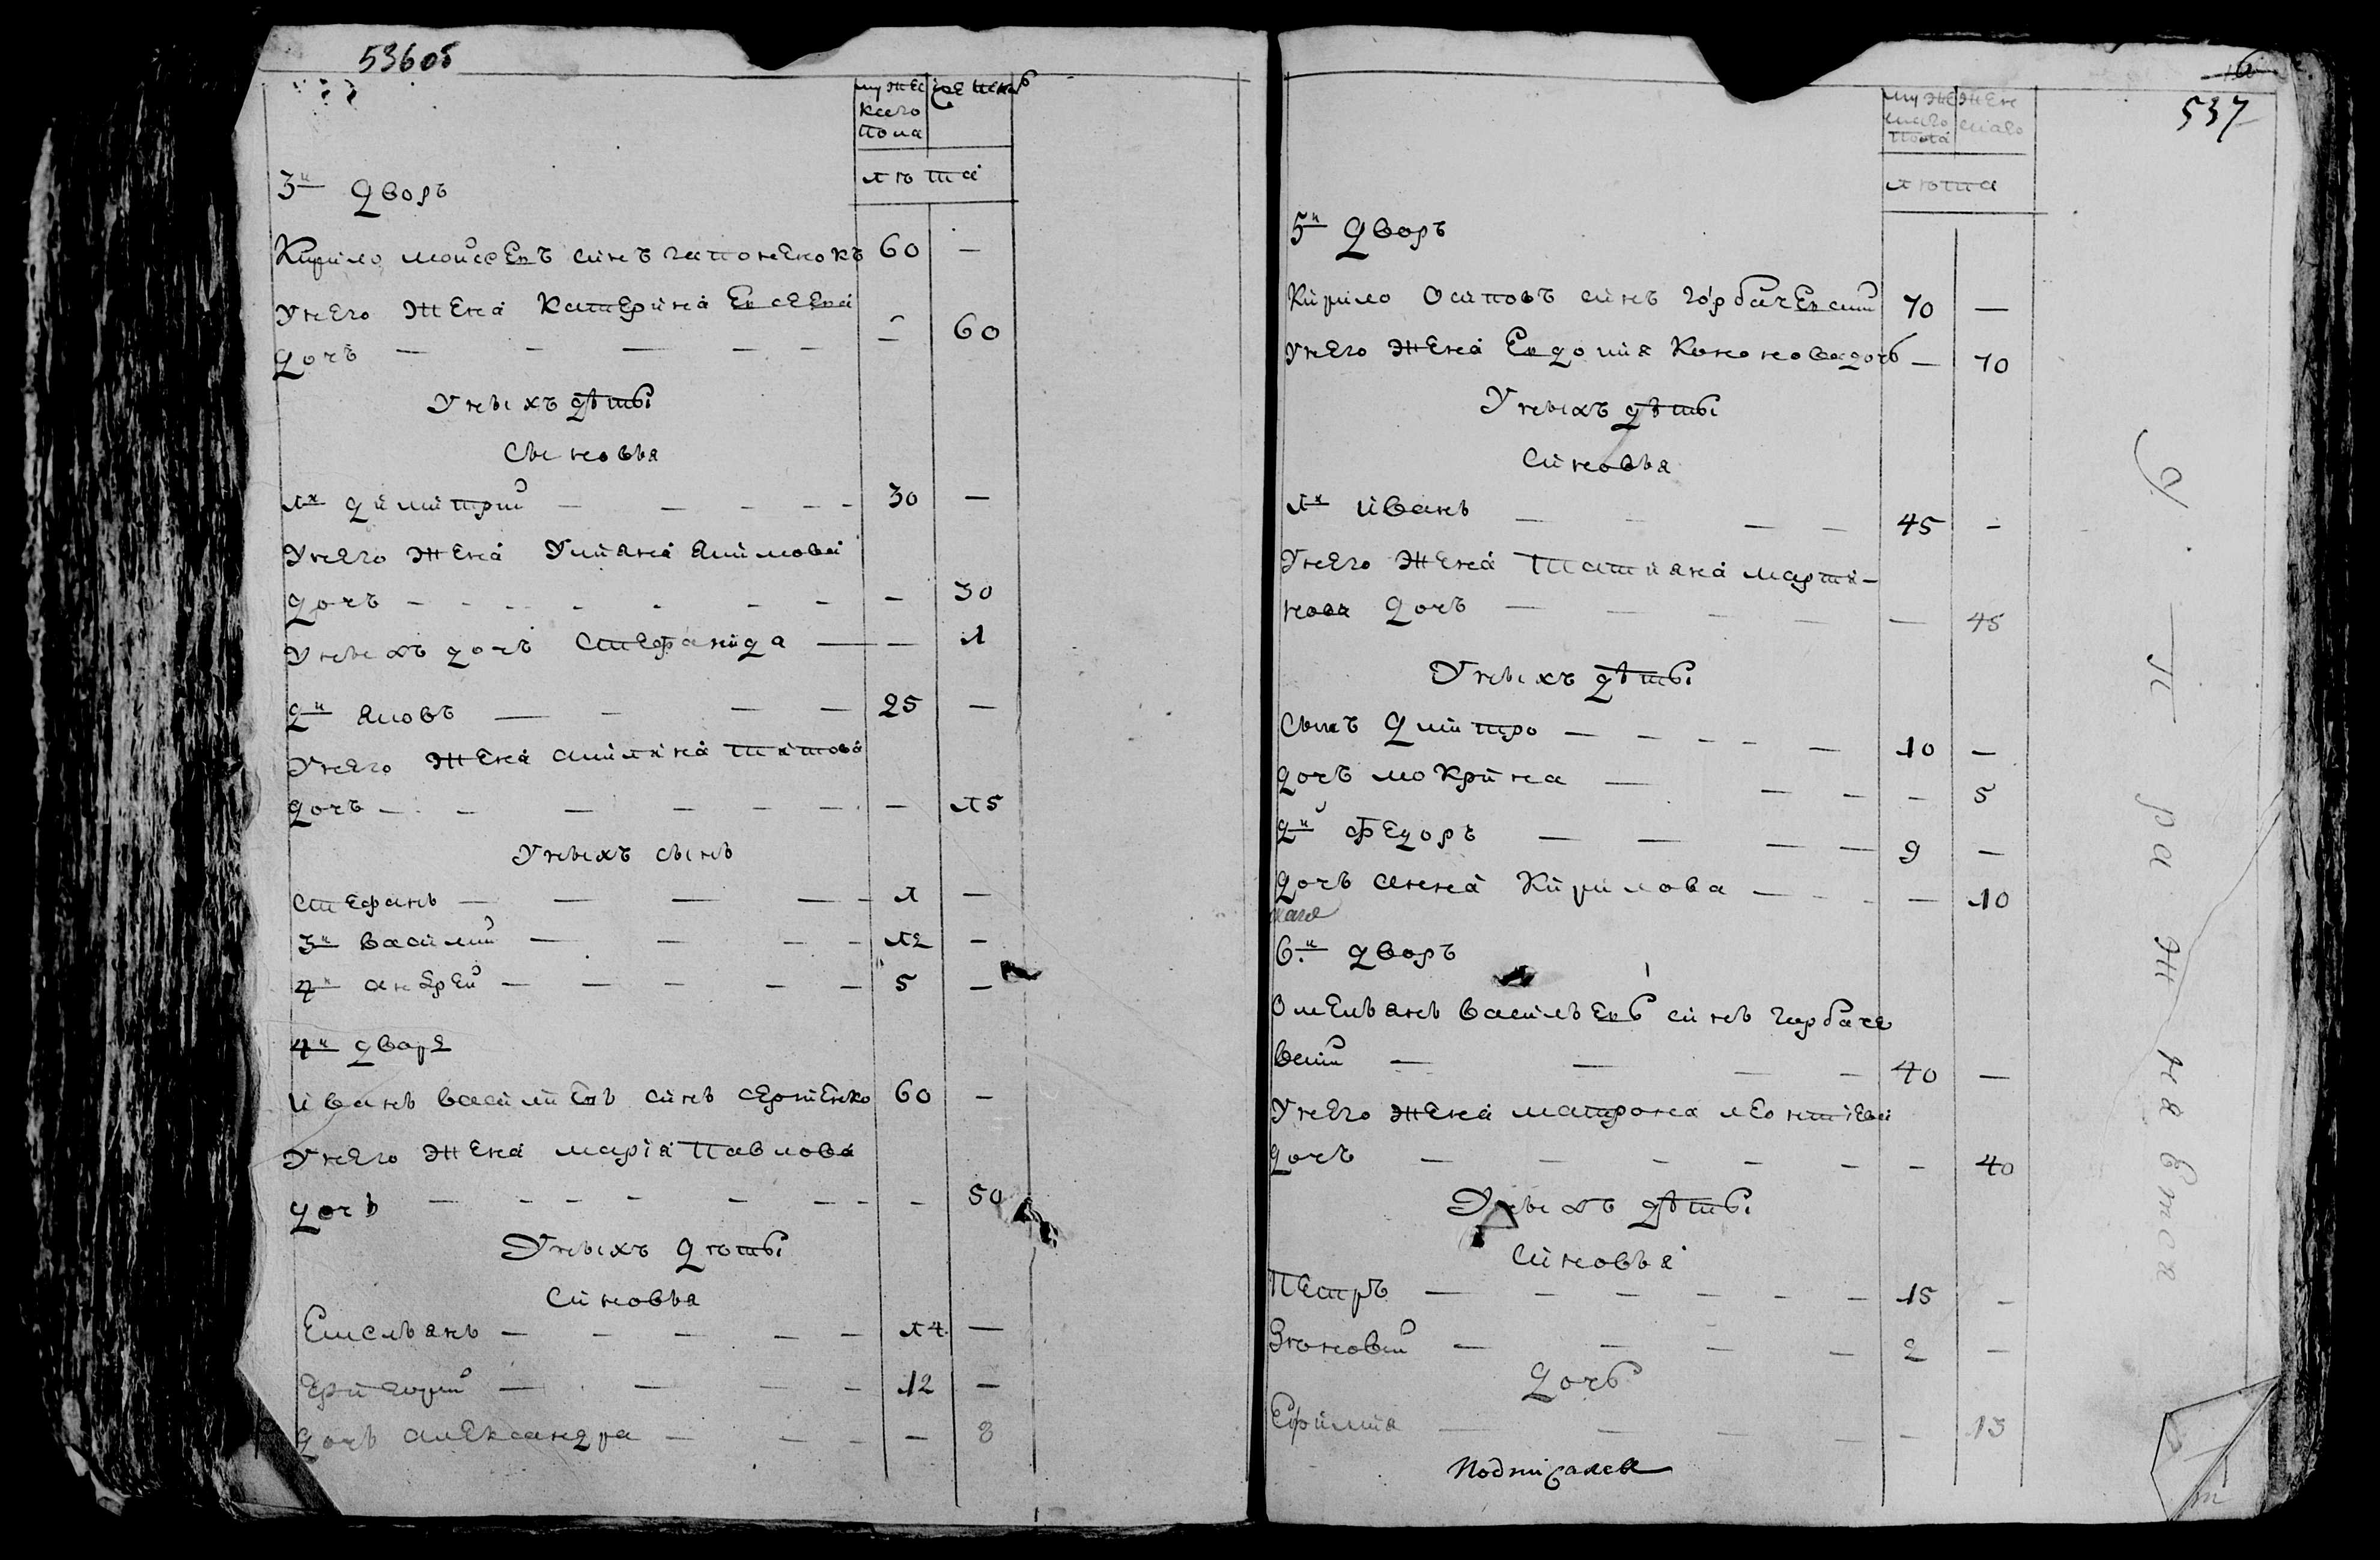 536об
мужес женск
каго
пола
лѣта
3й дворъ
Кирило Мойсеевъ синъ Гапоненокъ 60 —
У него жена Катерина Евсеева
дочь — — — — — — 60
У ныхъ дѣты
Сыновья
1й Димитрий — — — — 30 —
У него жена Улияна Якимова
дочь — — — — — — — 30
У ныхъ дочь Стефанида — — 1
2й Яковъ — — — — 25 —
У него жена Акилина Титова
дочь — — — — — — 15
У ныхъ сынъ
Стефанъ — — — — — 1 —
3й Василий — — — — 12 —
4й Андрей — — — — — 5 —
4й дворъ
Иванъ Василиевъ синъ Сергиенко 60 —
У него жена Мария Павлова
дочь — — — — — — — — 50
У ныхъ дѣты
Синовья
Емельянъ — — — — — 14 —
Григорий — — — — 12 —
дочь Александра — — — — 8
537
муже жен
скаго скаго
пола
лѣта
5й дворъ
Кирило Осиповъ синъ Горбачевский 70 —
У него жена Евдокия Кононова дочь — 70
У ныхъ дѣты
Синовья
1й Иванъ — — — — 45 —
У него жена Татияна Марти-
нова дочь — — — — — 45
У ныхъ дѣты
Сынъ Дмитро — — — — — 10 —
дочь Мокрина — — — — 5
2й Федоръ — — — — 9 —
дочь Анна Кирилова — — — — 10
6й дворъ
Омельянъ Васильевъ синъ Горбаче
вский — — — — 40 —
У него жена Матрона Леонтиева
дочь — — — — — — — 40
У ныхъ дѣты
Синовья
Петръ — — — — — — 15 —
Зѣновий — — — — 2 —
Дочь
Ефимия — — — — — 13
Подписалея